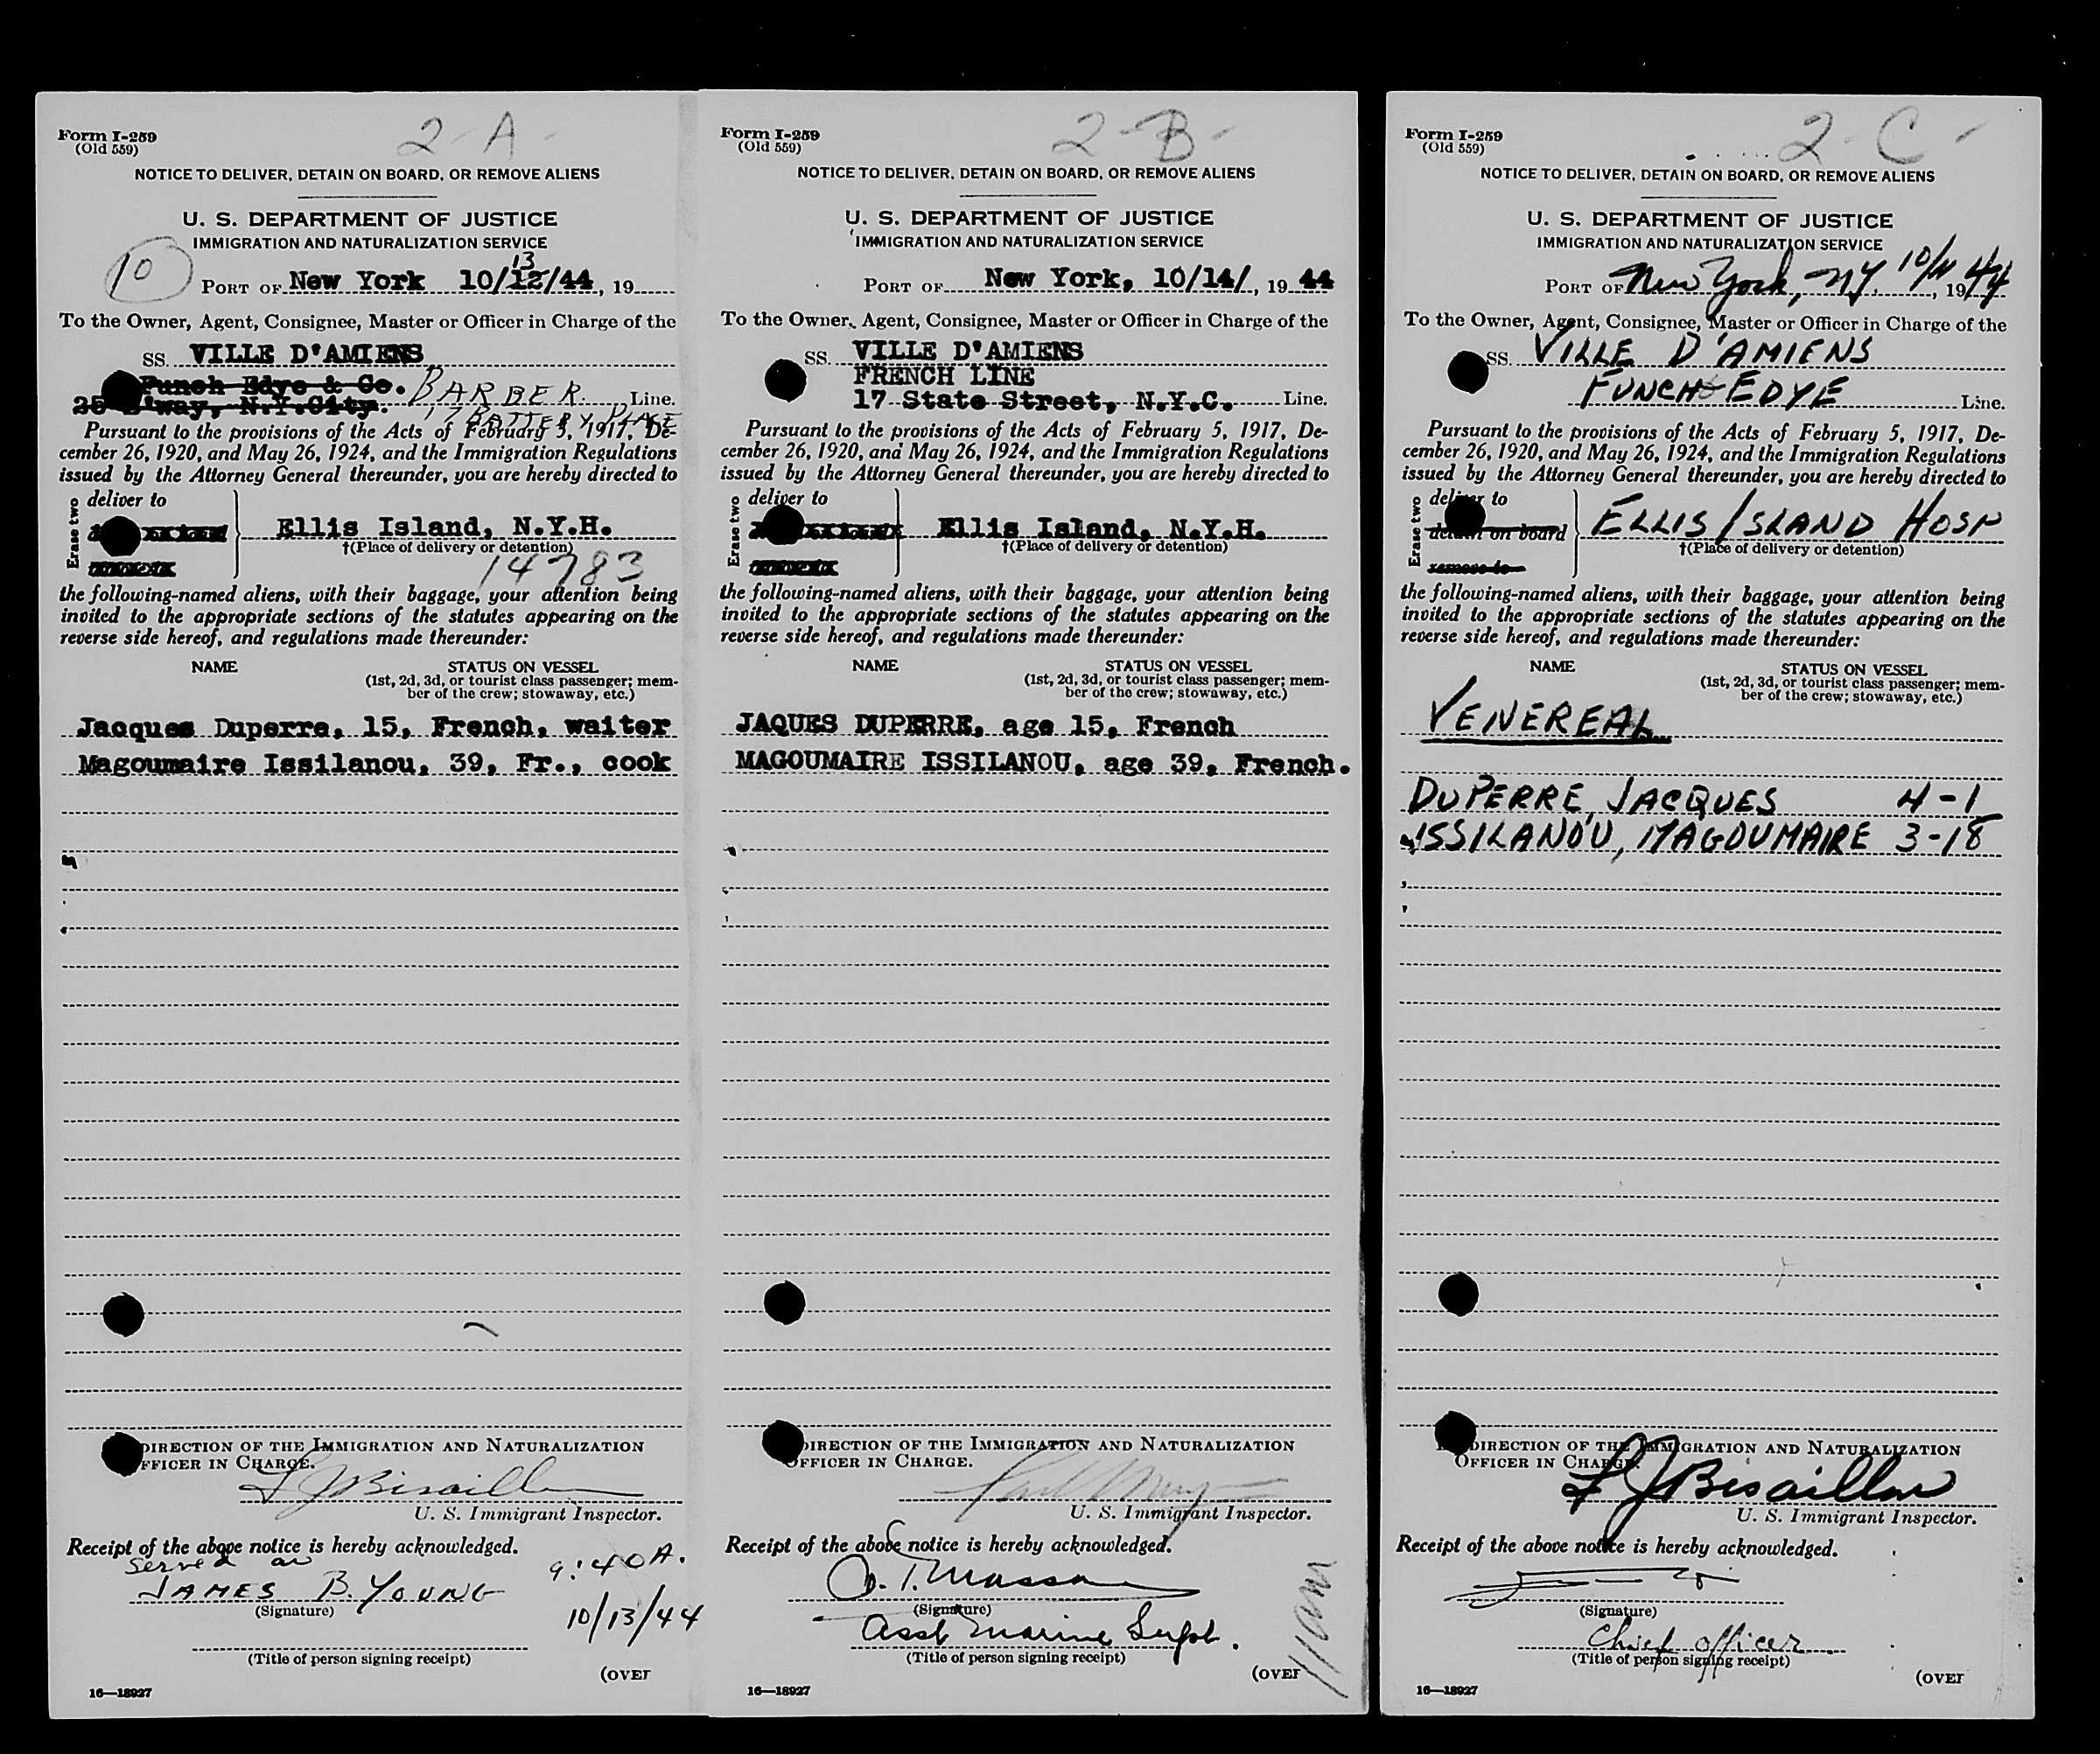 Form I-259
(Old 559)
2-A-
NOTICE TO DELIVER, DETAIN ON BOARD, OR REMOVE ALIENS
U. S. DEPARTMENT OF JUSTICE
IMMIGRATION AND NATURALIZATION SERVICE
10
13
PORT OF New York 10/12/44, 19
To the Owner, Agent, Consignee, Master or Officer in Charge of the
SS. VILLE D'AMIENS
Funch Edye & Co. BARBER Line.
25 B'way, N.Y.City. 17 BATTERY PLACE
Pursuant to the provisions of the Acts of February 5, 1917, De-
cember 26, 1920, and May 26, 1924, and the Immigration Regulations
issued by the Attorney General thereunder, you are hereby directed to
Erase two
deliver to
Ellis Island, N.Y.H.
†(Place of delivery or detention)
14783
the following-named aliens, with their baggage, your attention being
invited to the appropriate sections of the statutes appearing on the
reverse side hereof, and regulations made thereunder:
NAME STATUS ON VESSEL
(1st, 2d, 3d, or tourist class passenger; mem-
ber of the crew; stowaway, etc.)
Jacques Duperre, 15, French, waiter
Magoumaire Issilanou, 39, Fr., cook
DIRECTION OF THE IMMIGRATION AND NATURALIZATION
FFICER IN CHARGE.
L J Bisaillon
U. S. Immigrant Inspector.
Receipt of the above notice is hereby acknowledged.
Served on
JAMES B. YOUNG 9:40 A.
(Signature)
10/13/44
(Title of person signing receipt)
(OVER
16—18927
Form I-259
(Old 559)
2-B-
NOTICE TO DELIVER, DETAIN ON BOARD, OR REMOVE ALIENS
U. S. DEPARTMENT OF JUSTICE
IMMIGRATION AND NATURALIZATION SERVICE
PORT OF New York, 10/14/, 19 44
To the Owner, Agent, Consignee, Master or Officer in Charge of the
SS. VILLE D'AMIENS
FRENCH LINE
17 State Street, N.Y.C. Line.
Pursuant to the provisions of the Acts of February 5, 1917, De-
cember 26, 1920, and May 26, 1924, and the Immigration Regulations
issued by the Attorney General thereunder, you are hereby directed to
Erase two
deliver to
Ellis Island, N.Y.H.
†(Place of delivery or detention)
the following-named aliens, with their baggage, your attention being
invited to the appropriate sections of the statutes appearing on the
reverse side hereof, and regulations made thereunder:
NAME STATUS ON VESSEL
(1st, 2d, 3d, or tourist class passenger; mem-
ber of the crew; stowaway, etc.)
JAQUES DUPERRE, age 15, French
MAGOUMAIRE ISSILANOU, age 39, French.
DIRECTION OF THE IMMIGRATION AND NATURALIZATION
OFFICER IN CHARGE.
U. S. Immigrant Inspector.
Receipt of the above notice is hereby acknowledged.
(Signature)
Asst Marine Supt.
(Title of person signing receipt)
11 am
(OVER
16—18927
Form I-259
(Old 559)
2-C-
NOTICE TO DELIVER, DETAIN ON BOARD, OR REMOVE ALIENS
U. S. DEPARTMENT OF JUSTICE
IMMIGRATION AND NATURALIZATION SERVICE
PORT OF New York, NY. 10/11, 19 44
To the Owner, Agent, Consignee, Master or Officer in Charge of the
SS. VILLE D'AMIENS
FUNCH-EDYE Line.
Pursuant to the provisions of the Acts of February 5, 1917, De-
cember 26, 1920, and May 26, 1924, and the Immigration Regulations
issued by the Attorney General thereunder, you are hereby directed to
Erase two
deliver to
detain on board
remove to
ELLIS ISLAND HOSP
†(Place of delivery or detention)
the following-named aliens, with their baggage, your attention being
invited to the appropriate sections of the statutes appearing on the
reverse side hereof, and regulations made thereunder:
NAME STATUS ON VESSEL
(1st, 2d, 3d, or tourist class passenger; mem-
ber of the crew; stowaway, etc.)
VENEREAL
DUPERRE, JACQUES 4-1
ISSILANOU, MAGOUMAIRE 3-18
DIRECTION OF THE IMMIGRATION AND NATURALIZATION
OFFICER IN CHARGE.
L J Bisaillon
U. S. Immigrant Inspector.
Receipt of the above notice is hereby acknowledged.
(Signature)
Chief officer
(Title of person signing receipt)
(OVER
16—18927